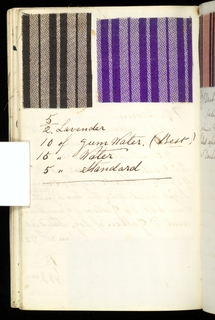 5
2. Lavender
10 of Gum Water. (Best)
15 " Water
5 " Standard